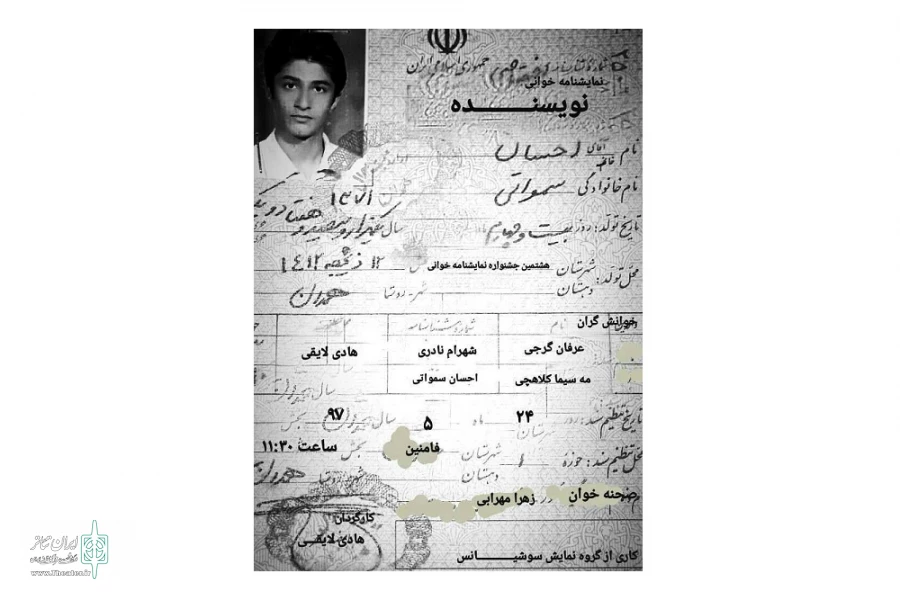 جمهوری اسلامی ایران
نمایشنامه خوانی
نویسنـــــــده
نام آقای خانم احسان
نام خانوادگی سمواتی
۱۳۷۱
تاریخ تولد: روز بیست و چهارم ماه سال یکهزار و سیصد و هفتاد و یک
۱۲ ذیحجه ۱۴۱۲
محل تولد: شهرستان دهستان
هشتمین جشنواره نمایشنامه خوانی
شهر - روستا همدان
خوانش گران
عرفان گرجی شهرام نادری هادی لایقی
مه سیما کلاهچی احسان سمواتی
تاریخ تنظیم سند: روز ۲۴ ماه ۵ سال ۹۷
محل تنظیم سند: حوزه شهرستان دهستان فامنین بخش ساعت ۱۱:۳۰
همدان
صحنه خوان زهرا مهرابی
کارگردان
هادی لایقـی
کاری از گروه نمایش سوشیـــــانس
ایران تئاتر
www.Theater.ir